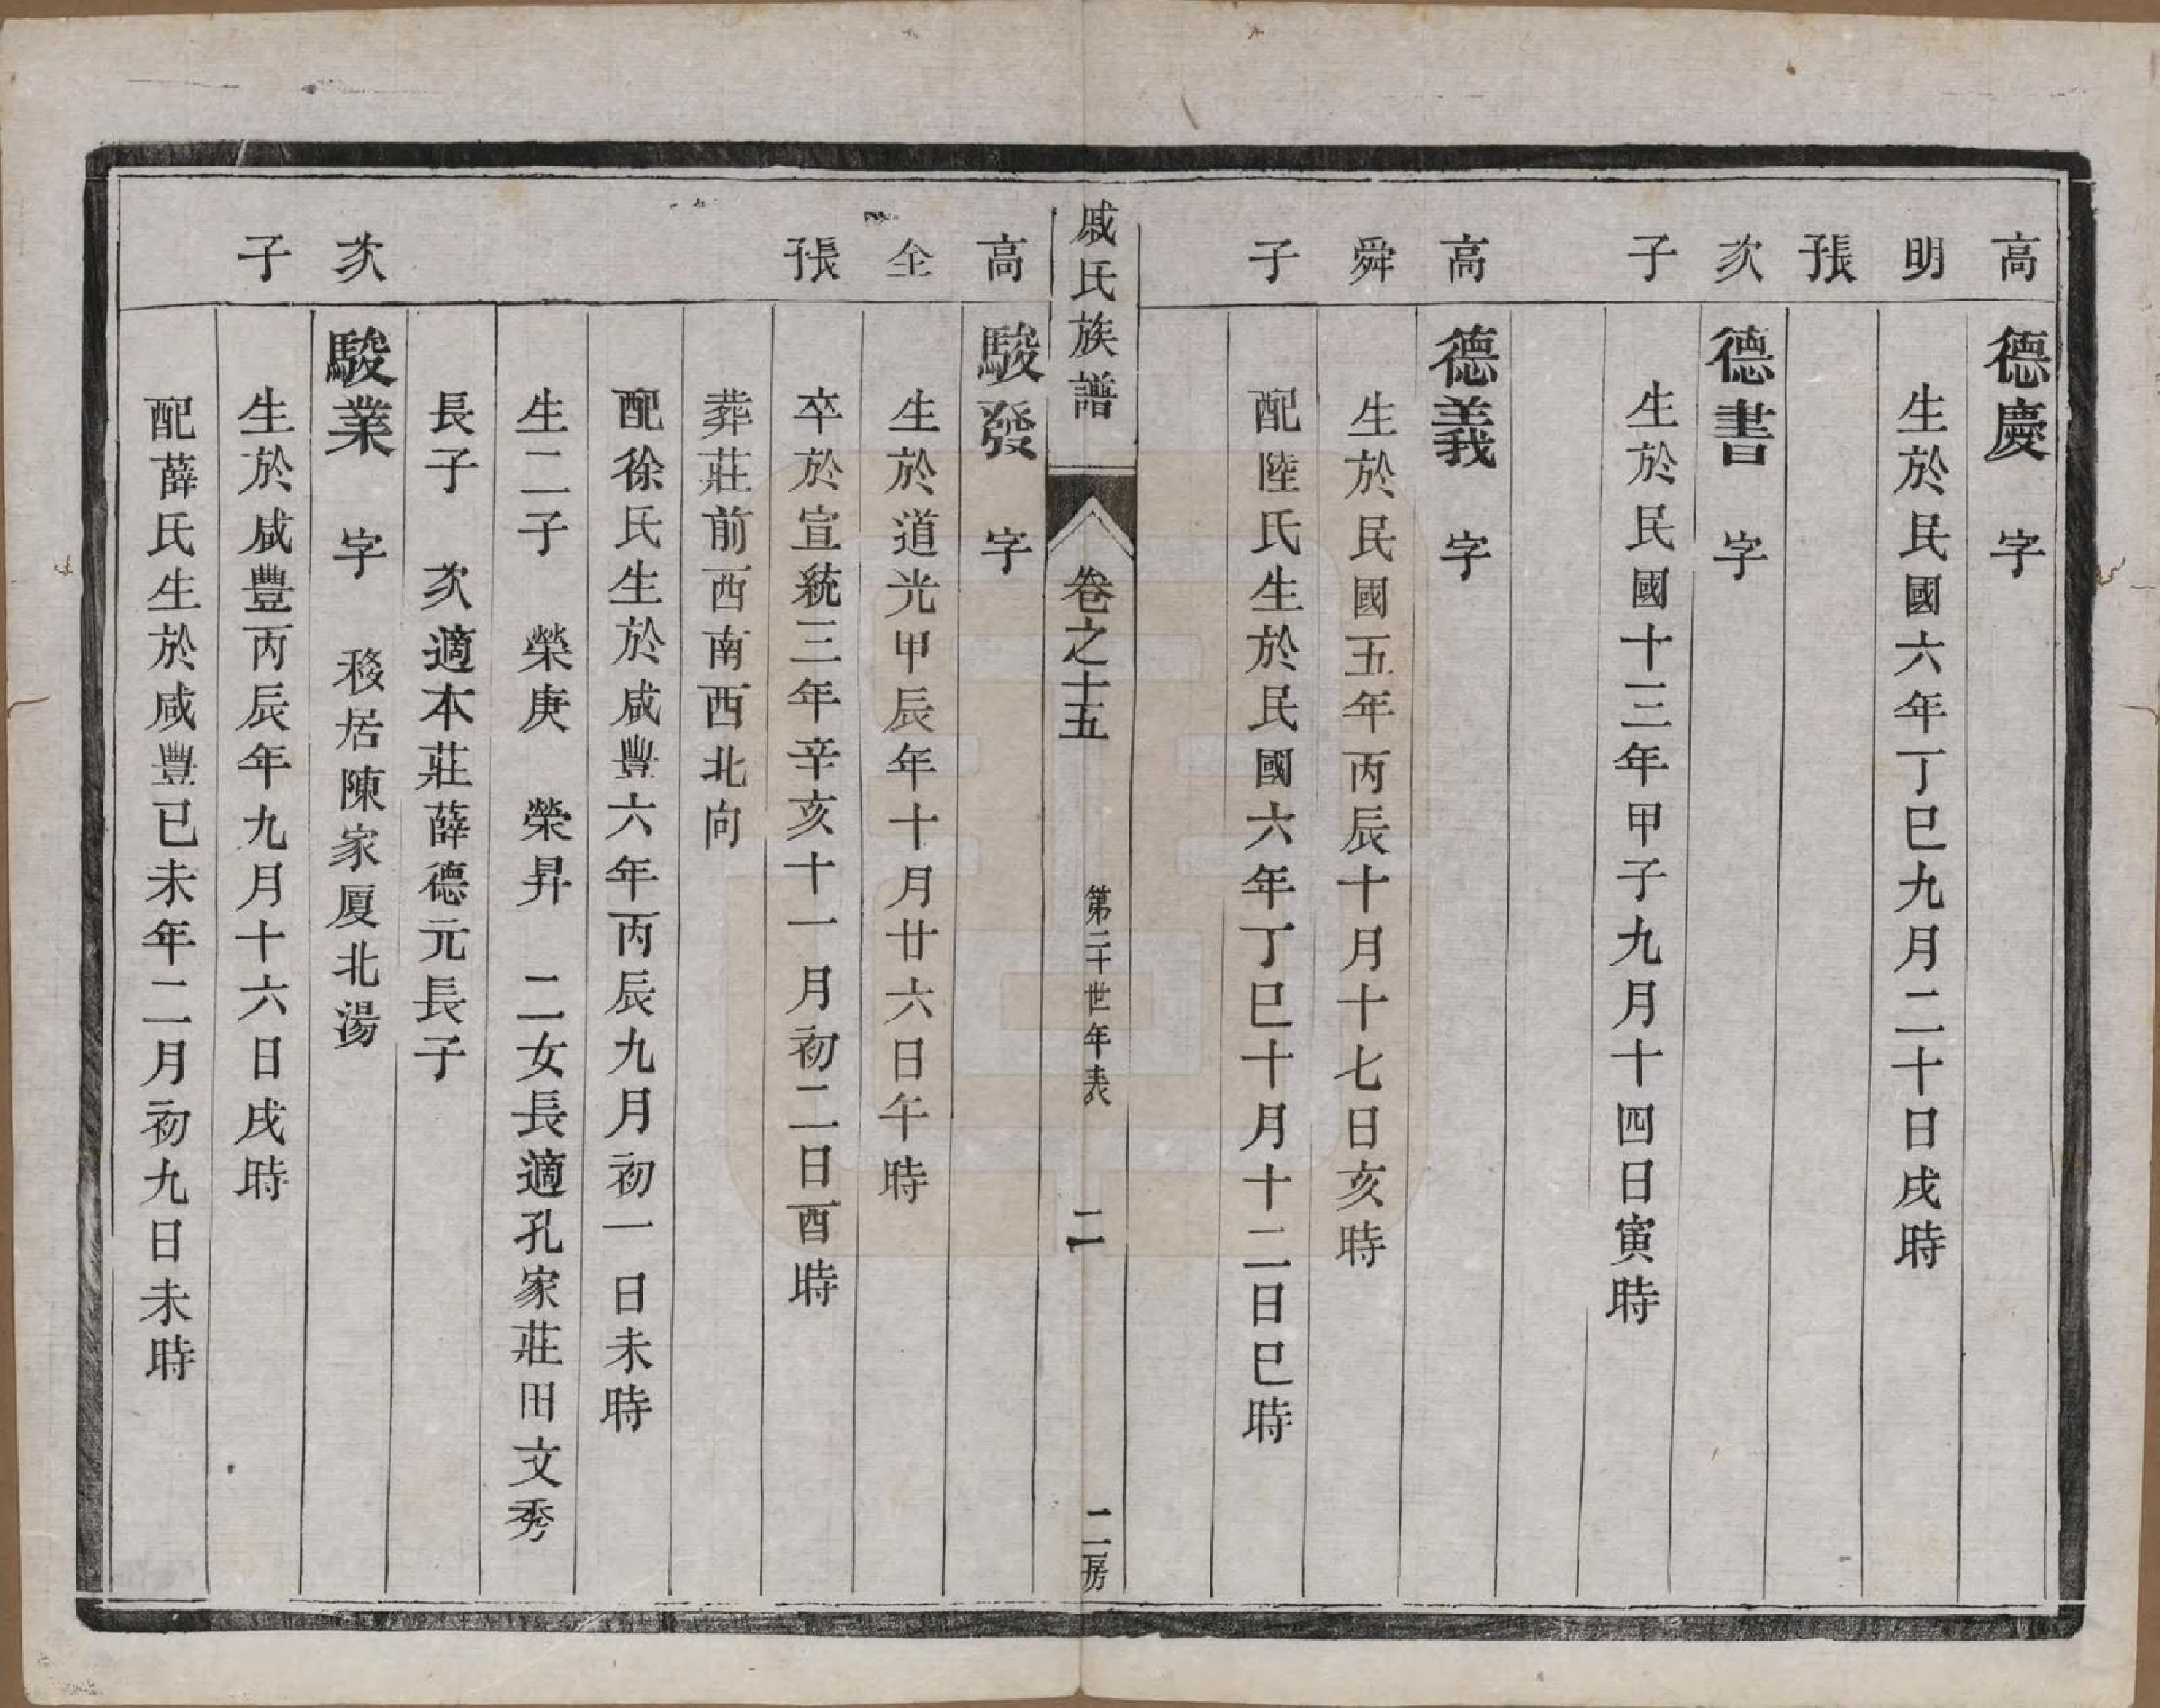 高
德慶　字
明
生於民國六年丁巳九月二十日戌時
張
次
德書　字
子
生於民國十三年甲子九月十四日寅時
高
德義　字
舜
生於民國五年丙辰十月十七日亥時
子
配陸氏生於民國六年丁巳十月十二日巳時
戚氏族譜　卷之十五　第二十世年表　二　二房
高
駿發　字
全
生於道光甲辰年十月廿六日午時
張
卒於宣統三年辛亥十一月初二日酉時
葬莊前西南西北向
配徐氏生於咸豐六年丙辰九月初一日未時
生二子　榮庚　榮昇　二女長適孔家莊田文秀
長子　次適本莊薛德元長子
次
駿業　字　移居陳家厦北湯
子
生於咸豐丙辰年九月十六日戌時
配薛氏生於咸豐已未年二月初九日未時